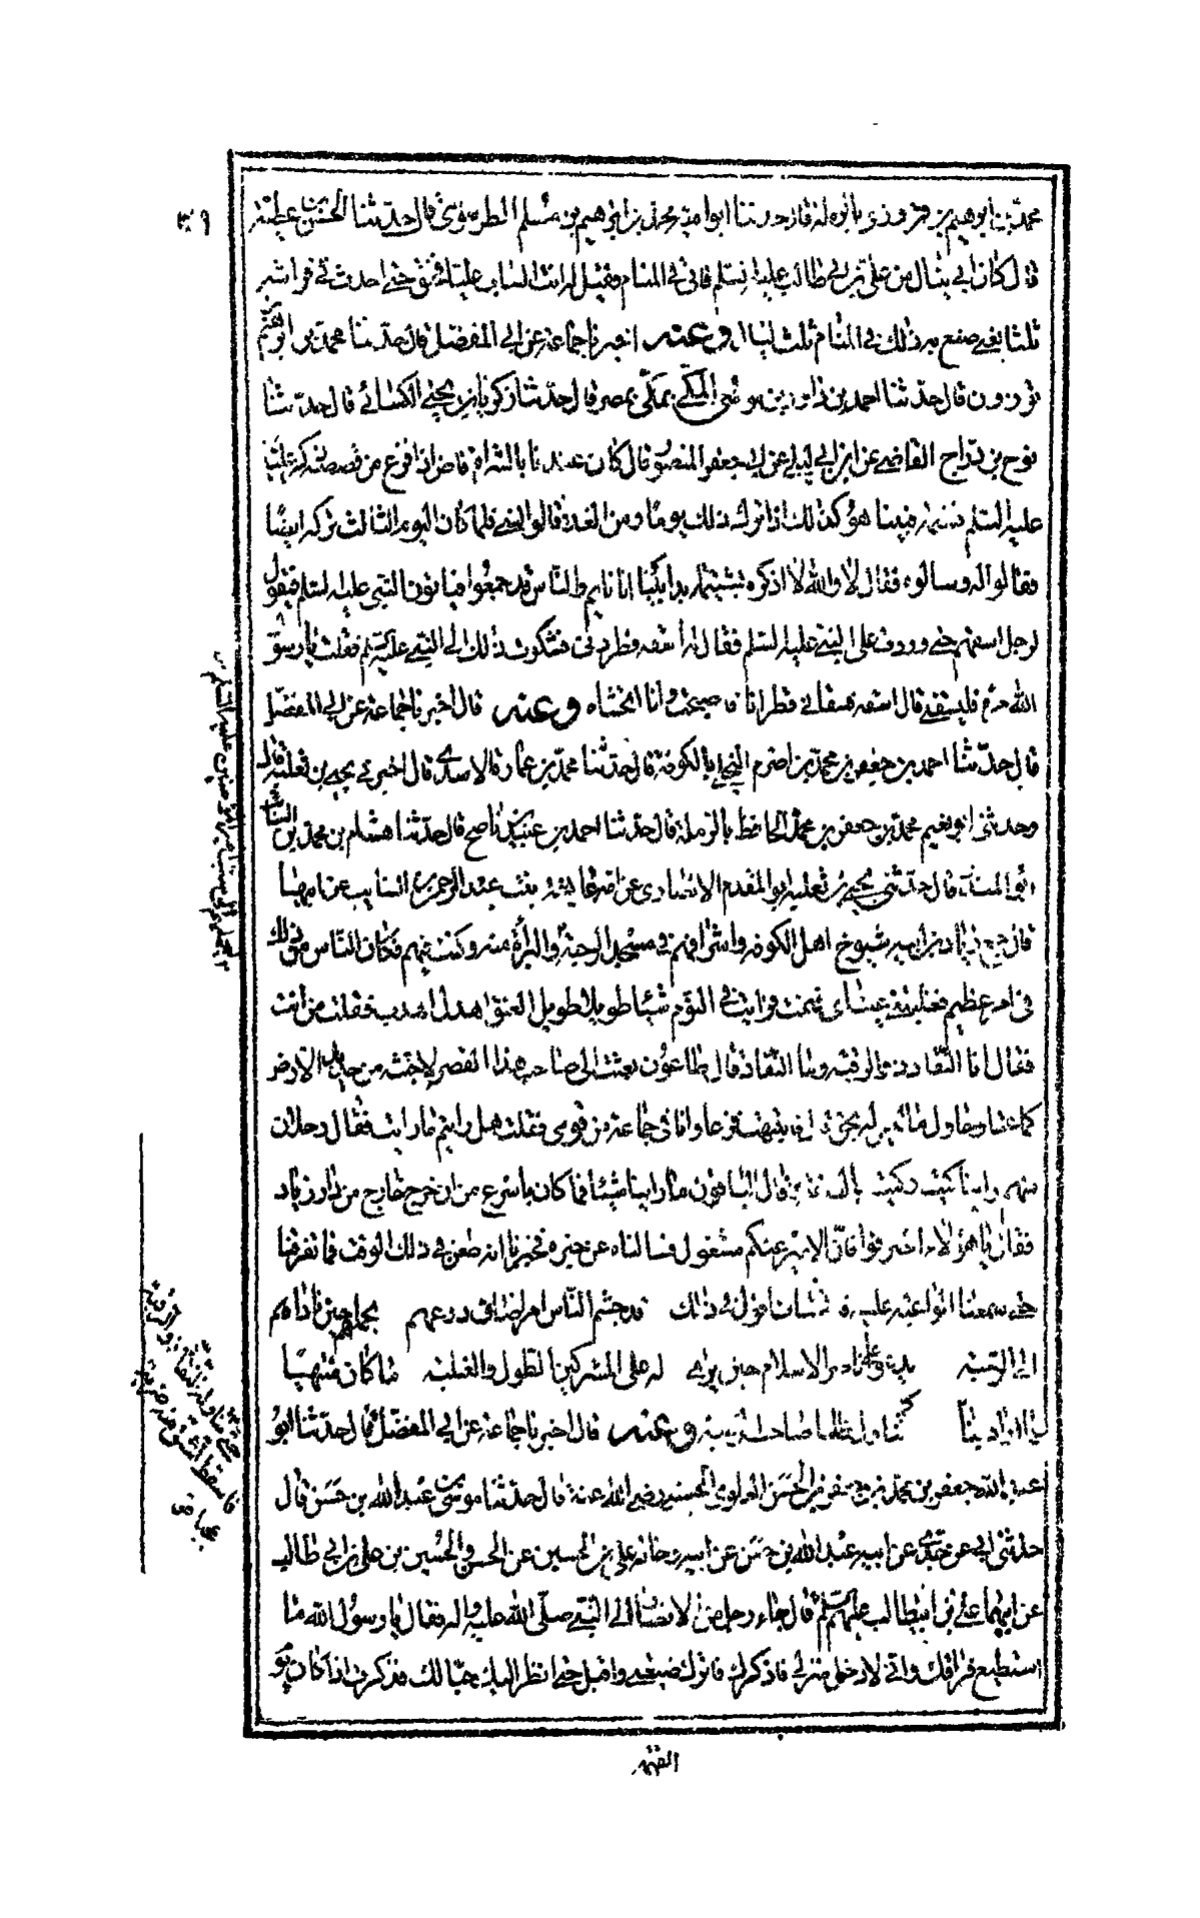 محمد بن ابرهيم بن قال حدثنا ابو امية محمد بن ابرهيم بن مسلم الطرسوسي قال حدثنا الحسن بن عطية
قال كان ابي ينال من علي بن ابي طالب عليه السلم فاتي في المنام فقيل له انت الساب عليا فخنق حتى احدث في فراشه
ثلثا يعني صنع به ذلك في المنام ثلث ليال وعنه اخبرنا جماعة عن ابي المفضل قال حدثنا محمد بن ابرهيم
قال حدثنا احمد بن داود بن موسى المكي بمصر قال حدثنا زكريا بن يحيى الكسائي قال حدثنا
نوح بن دراج القاضي عن ابن ابي ليلى عن ابي جعفر المنصور قال كان عندنا بالشراة قاض اذا فرغ من قصصه ذكر عليا
عليه السلم فشتمه فبينا هو كذلك اذ ترك ذلك يوما ومن الغد فلما كان اليوم الثالث تركه ايضا
فقالوا له وسالوه فقال لا والله لا اذكره بشتيمة ابدا بينا انا نايم والناس قد جمعوا فياتون النبي عليه السلم فيقول
لرجل اسقهم حتى وردت على النبي عليه السلم فقال له اسقه فطردني فشكوت ذلك الى النبي عليه السلم فقلت يا رسول
الله مره فليسقني قال اسقه فسقاني قطرانا فاصبحت وانا اتجشاه وعنه قال اخبرنا جماعة عن ابي المفضل
قال حدثنا احمد بن جعفر بن محمد بن اصرم البجلي بالكوفة قال حدثنا محمد بن عمارة الاسدي قال اخبرني يحيى بن ثعلبة قال
وحدثني ابو نعيم محمد بن جعفر بن محمد الحافظ بالرملة قال حدثنا احمد بن عبيد بن ناصح قال حدثنا هشام بن محمد بن السائب
ابو المنذر قال حدثني يحيى بن ثعلبة ابو المقدم الانصاري عن امه عايشة بنت عبد الرحمن بن السايب عن ابيها
قال جمع زياد بن ابيه شيوخ اهل الكوفة واشرافهم في مسجد الرحبة والبراءة منه وكنت فيهم فكان الناس من ذلك
في امر عظيم فغلبتني عيناي فنمت فرايت في النوم شيئا طويلا طويل العنق اهدل اهدب فقلت من انت
فقال انا النقاد ذو الرقبة وما النقاد قال طاعون بعثت الى صاحب هذا القصر لاجتثه من جديد الارض
كما عتا وحاول ما ليس له بحق قال فانتبهت فزعا وانا في جماعة من قومي فقلت هل رايتم ما رايت فقال رجلان
منهم راينا كيت وكيت بالصفة وقال الباقون ما راينا شيئا فما كان باسرع من ان خرج خارج من دار زياد
فقال يا هؤلاء انصرفوا فان الامير عنكم مشغول فسالناه عن خبره فخبرنا انه طعن في ذلك الوقت فما تفرقنا
حتى سمعنا الواعية عليه فانشات اقول في ذلك قد جشم الناس امرا ضاق ذرعهم بحملهم حين ناداهم
الى الرحبة يدعو على ناصر الاسلام حين يرى له على المشركين الطول والغلبة ما كان منتهيا
عما اراد بنا حتى تناوله النقاد ذو الرقبة فاسقط الشق منه ضربة عجبا
كما تناول ظلما صاحب الرحبة وعنه قال اخبرنا جماعة عن ابي المفضل قال حدثنا ابو
عبد الله جعفر بن محمد بن جعفر بن الحسن العلوي الحسيني رضي الله عنه قال حدثنا موسى بن عبد الله بن حسن قال
حدثني ابي عن جدي عن ابيه عبد الله بن حسن عن ابيه وخاله علي بن الحسين عن الحسن والحسين بن علي بن ابي طالب
عن ابيهما علي بن ابيطالب عليهم السلم قال جاء رجل من الانصار الى النبي صلى الله عليه واله فقال يا رسول الله ما
استطيع فراقك واني لادخل منزلي فاذكرك فاترك ضيعتي واقبل حتى انظر اليك حبا لك فذكرت اذا كان يوم
القيمة